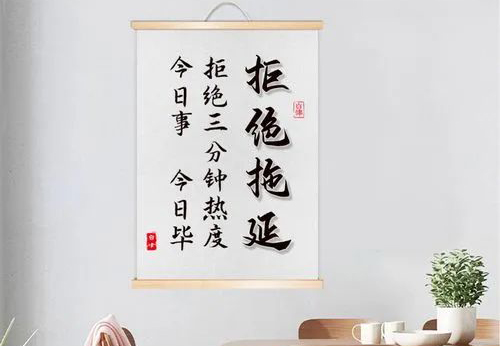 拒绝拖延
拒绝三分钟热度
今日事 今日毕